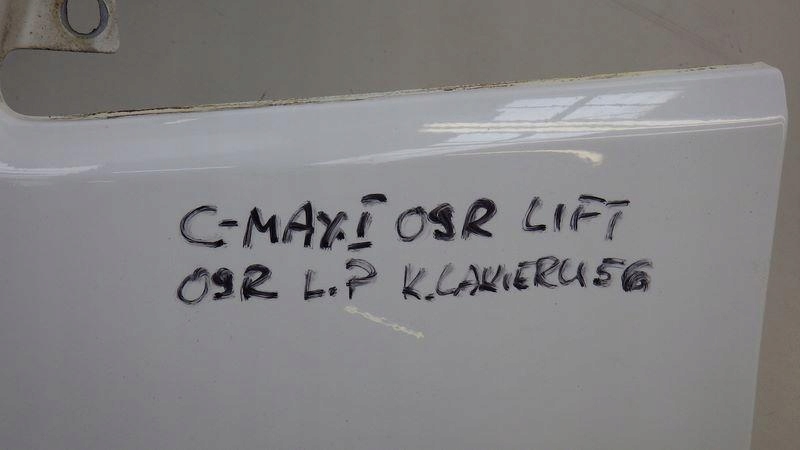 C-MAX.I 09R LIFT
09R L.P K.LAKIERU 5G